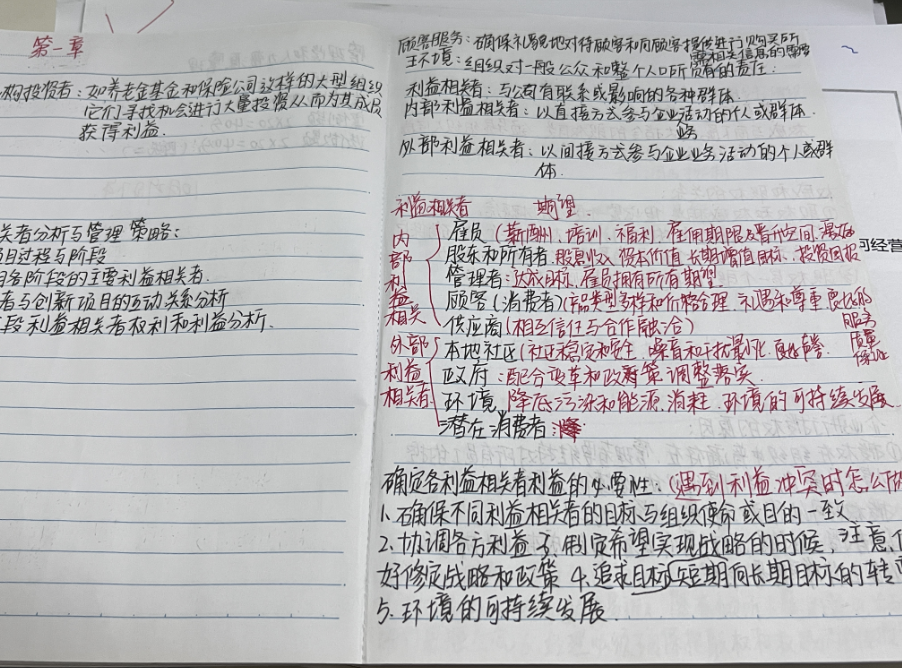 第一章
构投资者：如养老金基金和保险公司这样的大型组织
它们寻找机会进行大量投资从而为其成员
获得利益.
关者分析与管理策略：
项目过程与阶段
目各阶段的主要利益相关者.
者与创新项目的互动关系分析
段利益相关者权利和利益分析.
顾客服务：确保礼貌地对待顾客和向顾客提供进行购买所
需相关信息的需要
王环境：组织对一般公众和整个人口所负有的责任.
利益相关者：与公司有联系或影响的各种群体.
内部利益相关者：以直接方式参与企业活动的个人或群体.
业务
外部利益相关者：以间接方式参与企业业务活动的个人或群
体.
利益相关者 期望.
内部利益相关
雇员（薪酬、培训、福利、雇佣期限及晋升空间
股东和所有者.股息收入 资本价值 长期增值目标、投资回报
管理者：达成目标、雇员拥有所有期望.
顾客（消费者）（产品类型多样和价格合理、礼遇和尊重 良好的
服务
质量
保证
供应商（相互信任与合作融洽）
外部利益相关者
本地社区（社区稳定和安全、噪音和干扰最小化、良好声誉.
政府：配合改革和政策调整落实.
环境、降低污染和能源消耗、环境的可持续发展
潜在消费者：
可经营
确定各利益相关者利益的必要性：（遇到利益冲突时怎么做
1.确保不同利益相关者的目标与组织使命或目的一致
2.协调各方利益 3.制定希望实现战略的时候，注意
好修定战略和政策 4.追求目标短期向长期目标的转
5.环境的可持续发展.